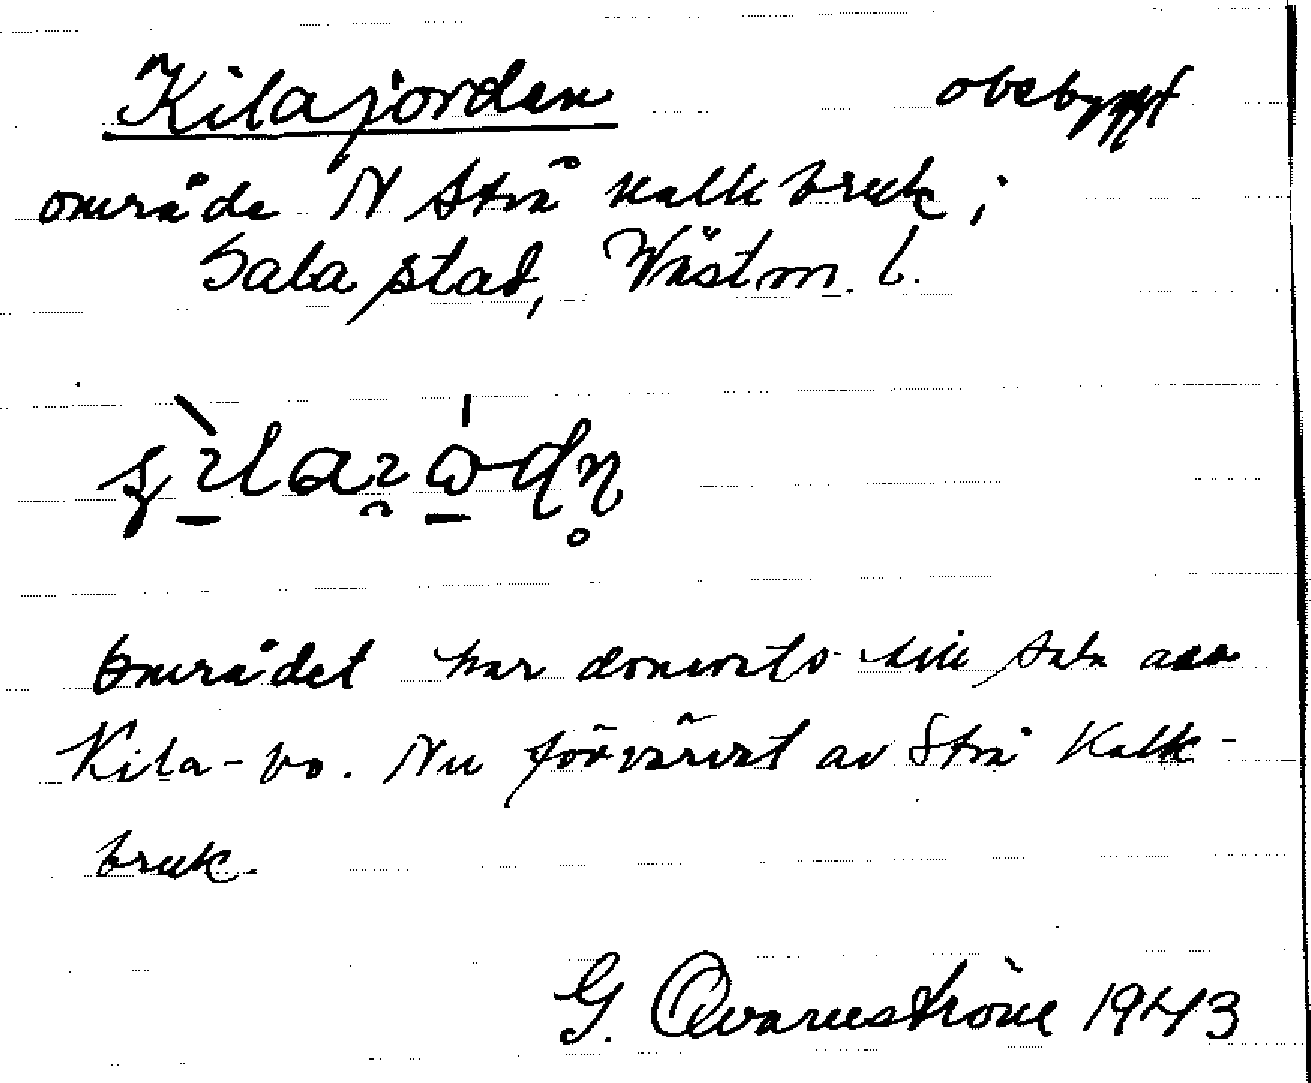 Kilajorden obebyggt
område N Strå kalkbruk,
Sala stad, Västm. l.
Området har donerats till Sala
Kila-bo. Nu förvärvat av Strå Kalk-
bruk.
G. Qvarnström 1943